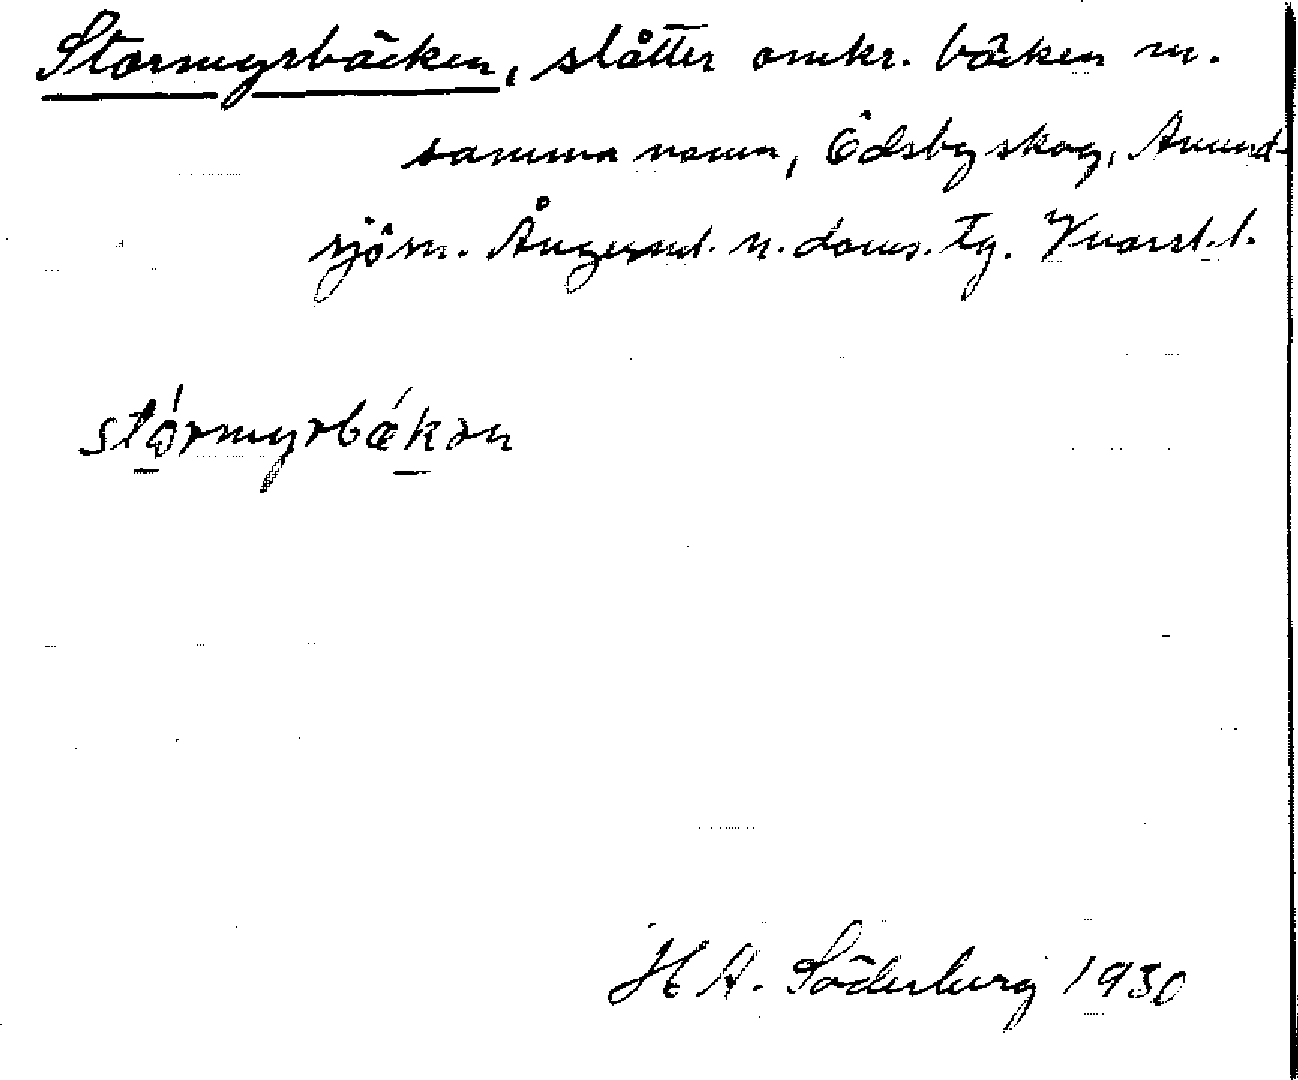 Stormyrbäcken, slåtter omkr. bäcken m.
samma namn, Ödsby skog, Anund-
sjö sn. Ångerml. n. doms. tg. Vnorrl. l.
stórmyrbǽkən
H A. Söderberg 1930